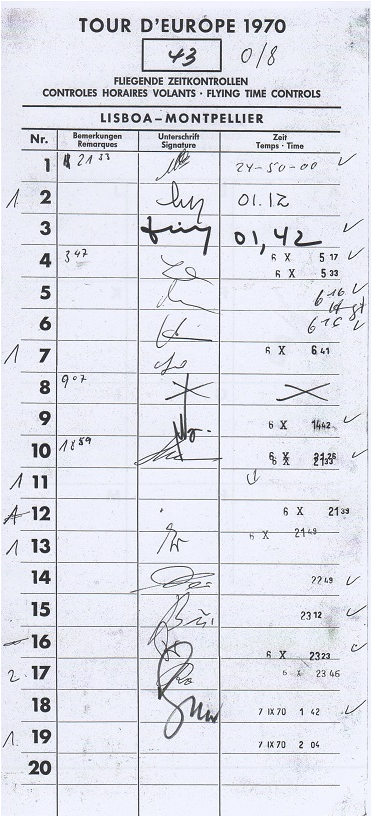 TOUR D'EUROPE 1970
43 0/8
FLIEGENDE ZEITKONTROLLEN
CONTROLES HORAIRES VOLANTS · FLYING TIME CONTROLS
LISBOA–MONTPELLIER
Nr. Bemerkungen Unterschrift Zeit
Remarques Signature Temps · Time
1 21 33 24-50-00
1 2 01.12
3 01,42
4 3 47 6 X 5 17
6 X 5 33
5 6 16
6 6 16
1 7 6 X 6 41
8 9 07
9 6 X 14 42
10 18 59 6 X 21 26
6 X 21 33
1 11
12 6 X 21 39
1 13 6 X 21 49
14 22 49
15 23 12
16 6 X 23 23
2 17 6 X 23 46
18 7 IX 70 1 42
1 19 7 IX 70 2 04
20